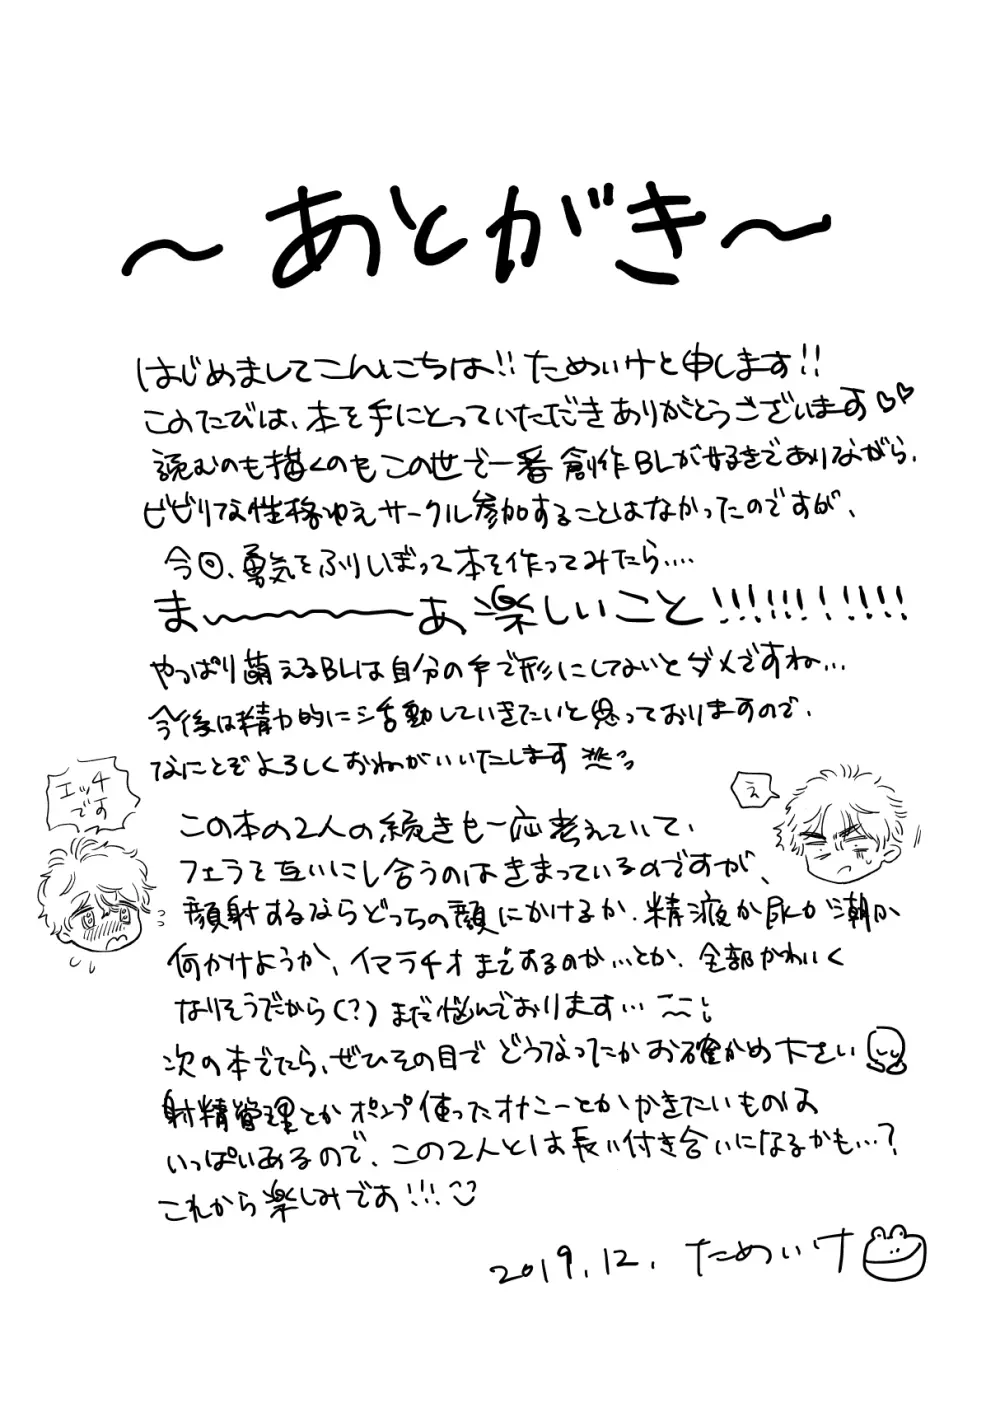 〜あとがき〜
はじめましてこんにちは!!ためいけと申します!!
このたびは、本を手にとっていただきありがとうございます♡♡
読むのも描くのもこの世で一番創作BLが好きでありながら、
ビビリな性格ゆえサークル参加することはなかったのですが、
今回、勇気をふりしぼって本を作ってみたら....
ま〜〜〜〜〜あ楽しいこと!!!!!!!!!!!
やっぱり萌えるBLは自分の手で形にしてないとダメですね...
今後は精力的に活動していきたいと思っておりますので、
なにとぞよろしくおねがいいたします
エッチ
です
え
この本の2人の続きも一応考えていて、
フェラを互いにし合うのはきまっているのですが、
顔射するならどっちの顔にかけるか、精液か尿か潮か
何かけようか、イマラチオまでするのか...とか、全部かわいく
なりそうだから(?)まだ悩んでおります...
次の本でたら、ぜひその目でどうなったかお確かめ下さい
射精管理とかポンプ使ったオナニーとかかきたいものは
いっぱいあるので、この2人とは長い付き合いになるかも...?
これから楽しみです!!!
2019.12. ためいけ